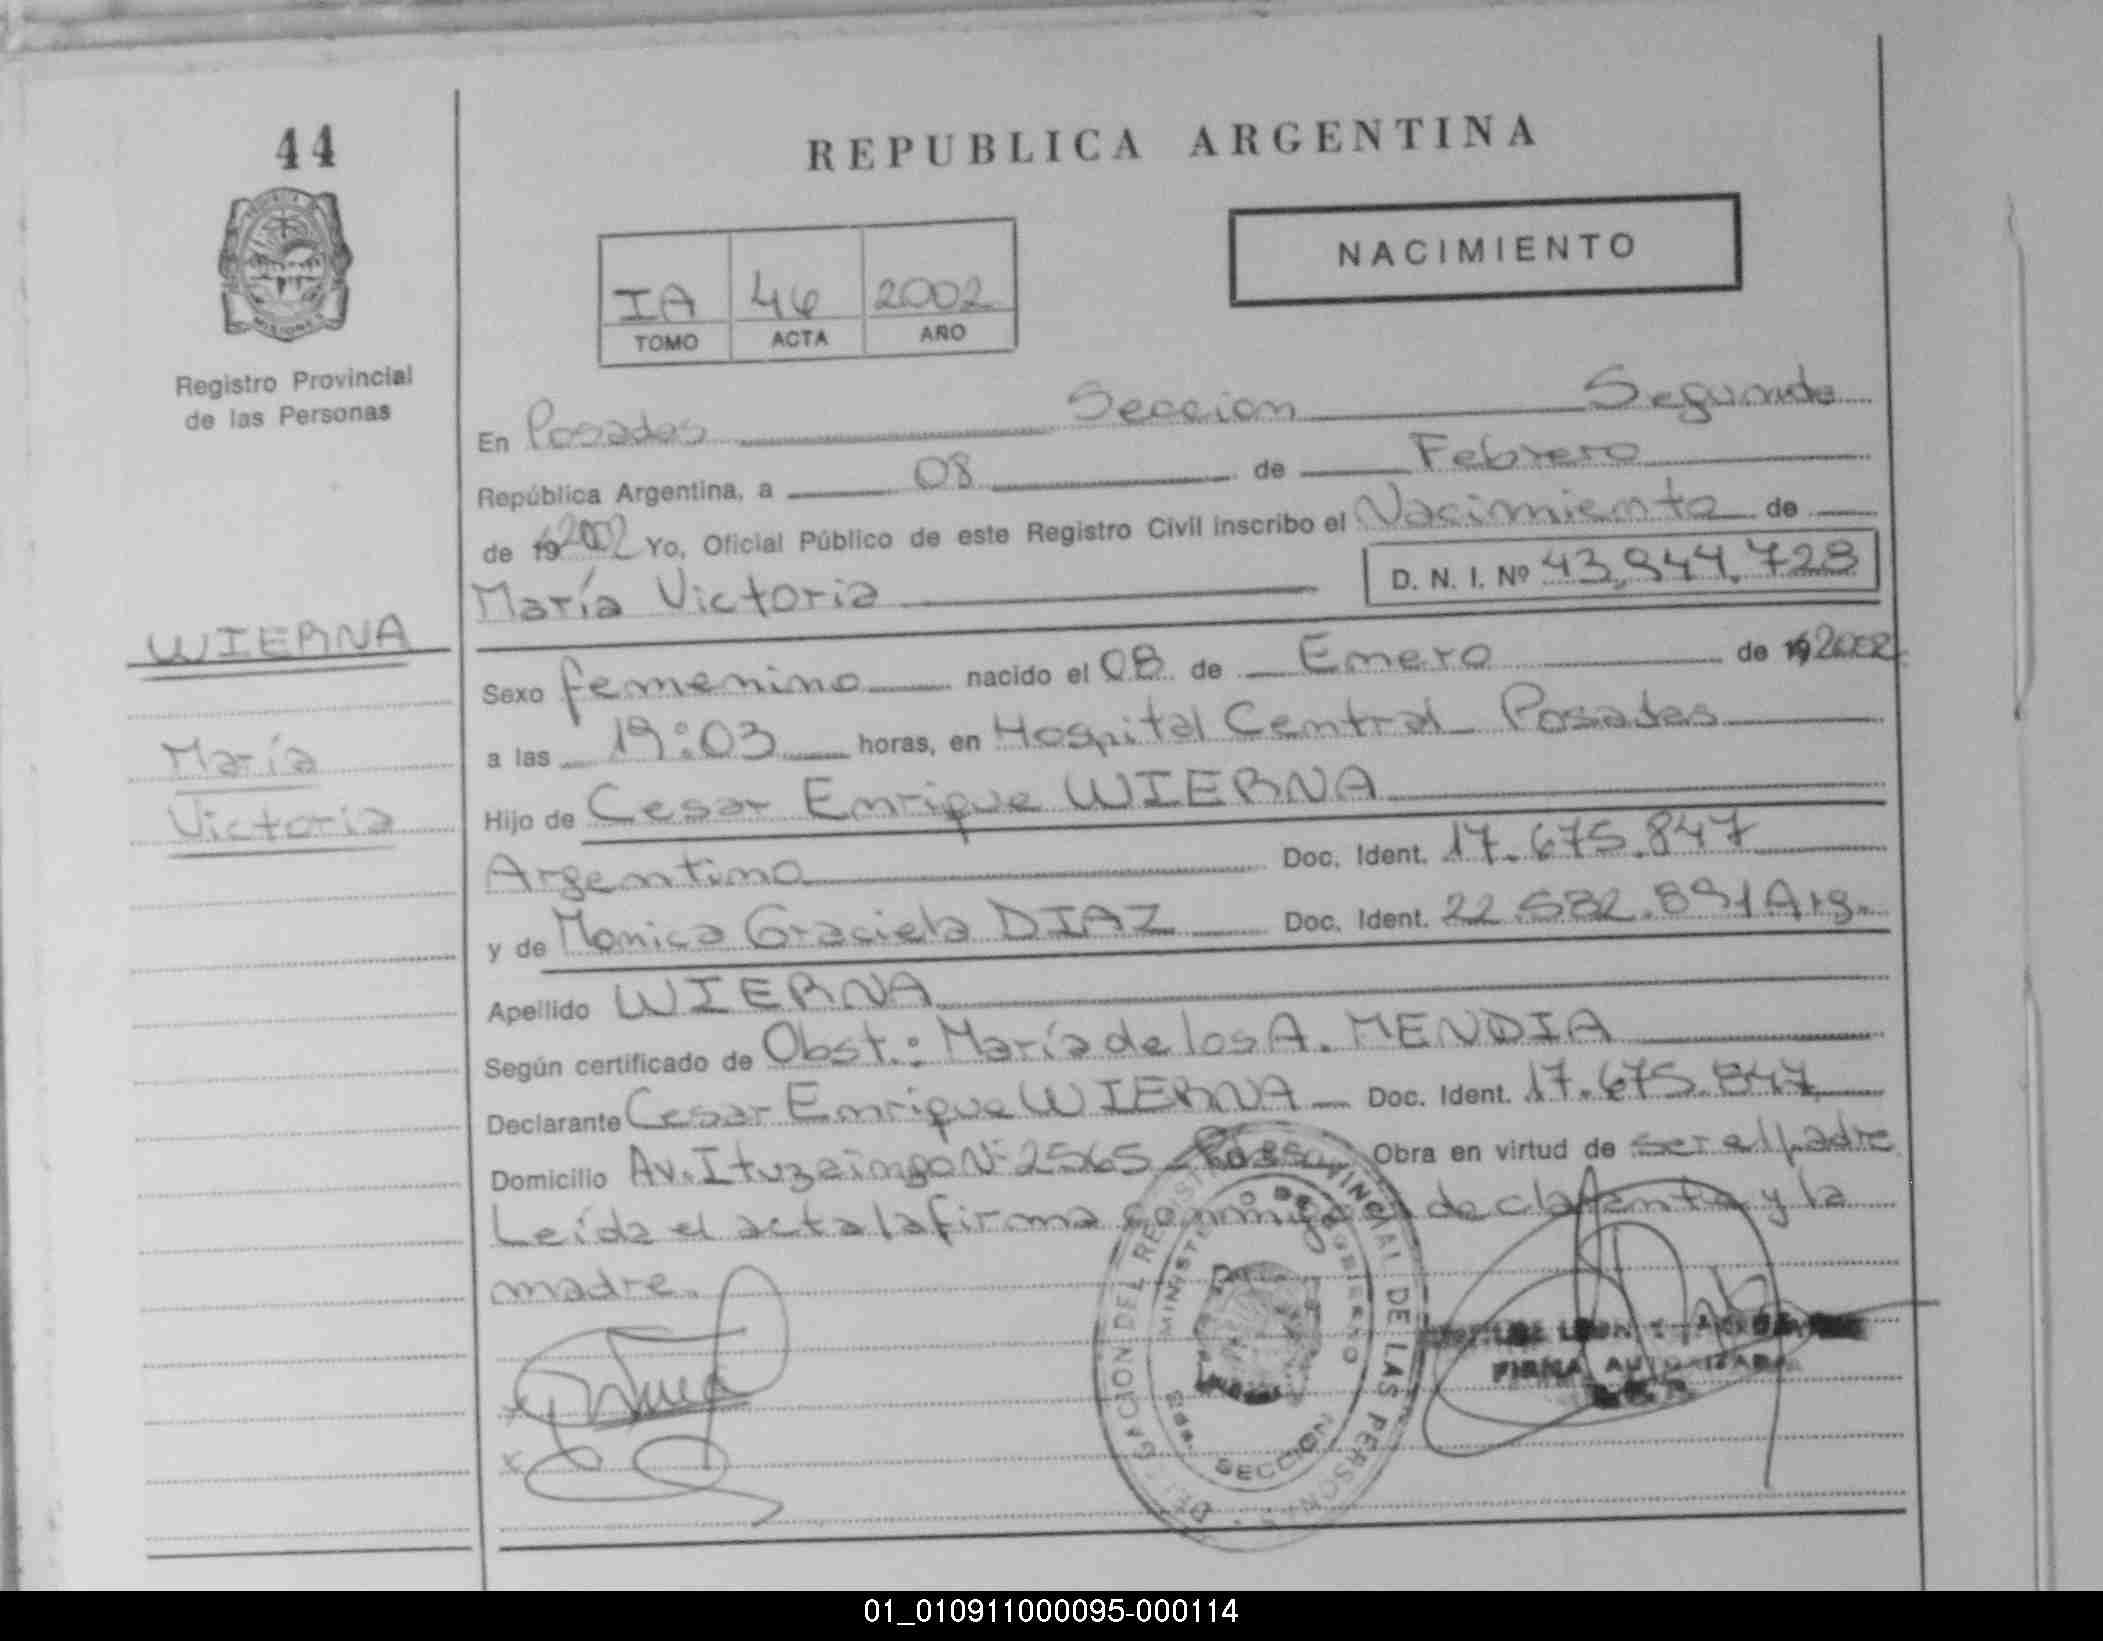 44
REPUBLICA ARGENTINA
NACIMIENTO
IA 44 2002
TOMO ACTA AÑO
Registro Provincial
de las Personas
En Posadas Seccion Segunda
República Argentina, a 08 de Febrero
de 19 2002 Yo, Oficial Público de este Registro Civil inscribo el Nacimiento de
María Victoria D. N. I. Nº 43.944.728
WIERNA
Sexo femenino nacido el 08 de Enero de 19 2002
a las 19:03 horas, en Hospital Central Posadas
María
Victoria
Hijo de Cesar Enrique WIERNA
Argentino Doc. Ident. 17.675.847
y de Monica Graciela DIAZ Doc. Ident. 22.582.891 Arg.
Apellido WIERNA
Según certificado de Obst.: María de los A. MENDIA
Declarante Cesar Enrique WIERNA Doc. Ident. 17.675.847
Domicilio Av. Ituzaingo Nº 2565 Obra en virtud de ser el padre
Leída el acta la firma conmigo el declarante y la
madre.
DELEGACION DEL REGISTRO PROVINCIAL DE LAS PERSONAS
MINISTERIO DE GOBIERNO
SECCION
FIRMA AUTORIZADA
01_010911000095-000114